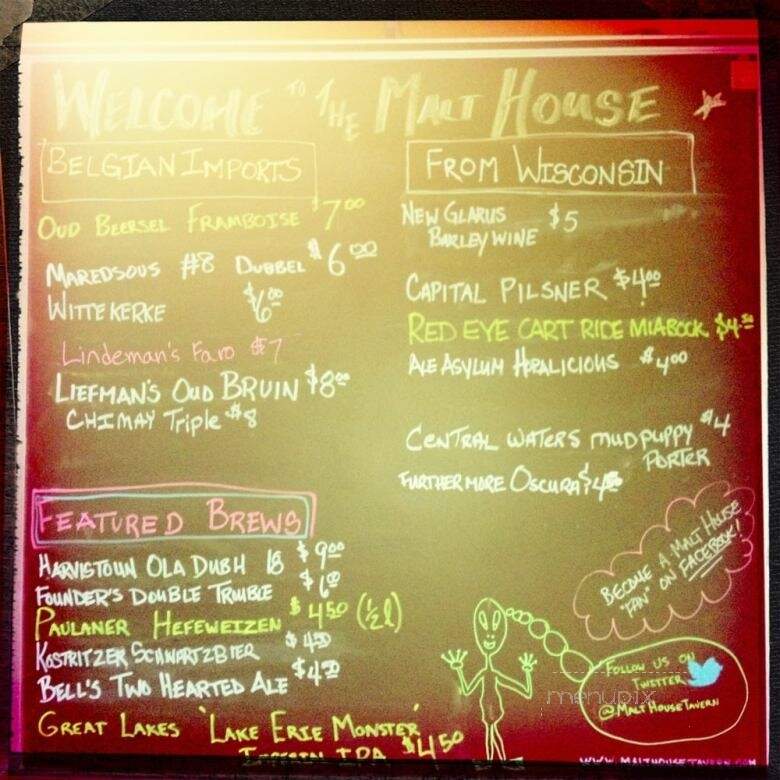 WELCOME TO THE MALT HOUSE
BELGIAN IMPORTS
OUD BEERSEL FRAMBOISE $7.00
MAREDSOUS #8 DUBBEL $6.00
WITTEKERKE $6.00
Lindeman's Faro $7
LIEFMAN'S OUD BRUIN $8.00
CHIMAY Triple $8
FEATURED BREWS
HARVISTOUN OLA DUBH 18 $9.00
FOUNDER'S DOUBLE TROUBLE $6.00
PAULANER HEFEWEIZEN $4.50 (½ l)
KOSTRITZER SCHWARTZBIER $4.50
BELL'S TWO HEARTED ALE $4.50
GREAT LAKES 'LAKE ERIE MONSTER'
IPA $4.50
FROM WISCONSIN
NEW GLARUS $5
BARLEY WINE
CAPITAL PILSNER $4.00
RED EYE CART RIDE MIABOCK $4.50
ALE ASYLUM HOPALICIOUS $4.00
CENTRAL WATERS MUDPUPPY $4
PORTER
FURTHERMORE OSCURA $4.50
BECOME A MALT HOUSE
"FAN" ON FACEBOOK!
FOLLOW US ON
TWITTER
@MALTHOUSETAVERN
menupix
WWW.MALTHOUSETAVERN.COM